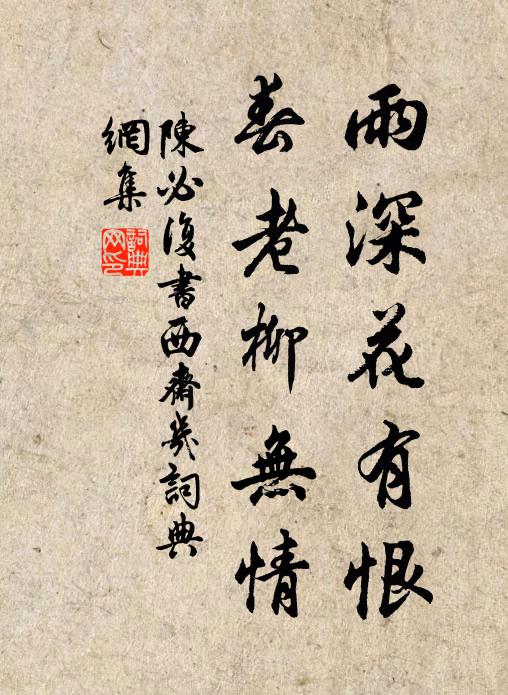 雨深花有恨
春老柳無情
陳必復書西齋几詞典
網集
詞典
网印